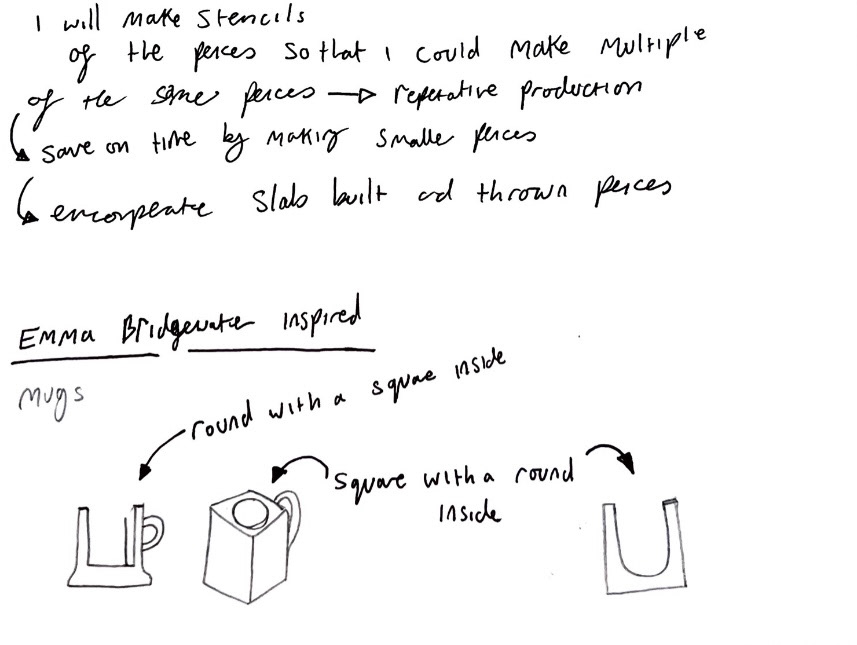 I will make stencils
of the peices so that i could make multiple
of the same peices → reperative production
save on time by making smalle peices
encorperate slab built and thrown peices
Emma Bridgewater inspired
mugs
round with a squae inside
square with a round
inside